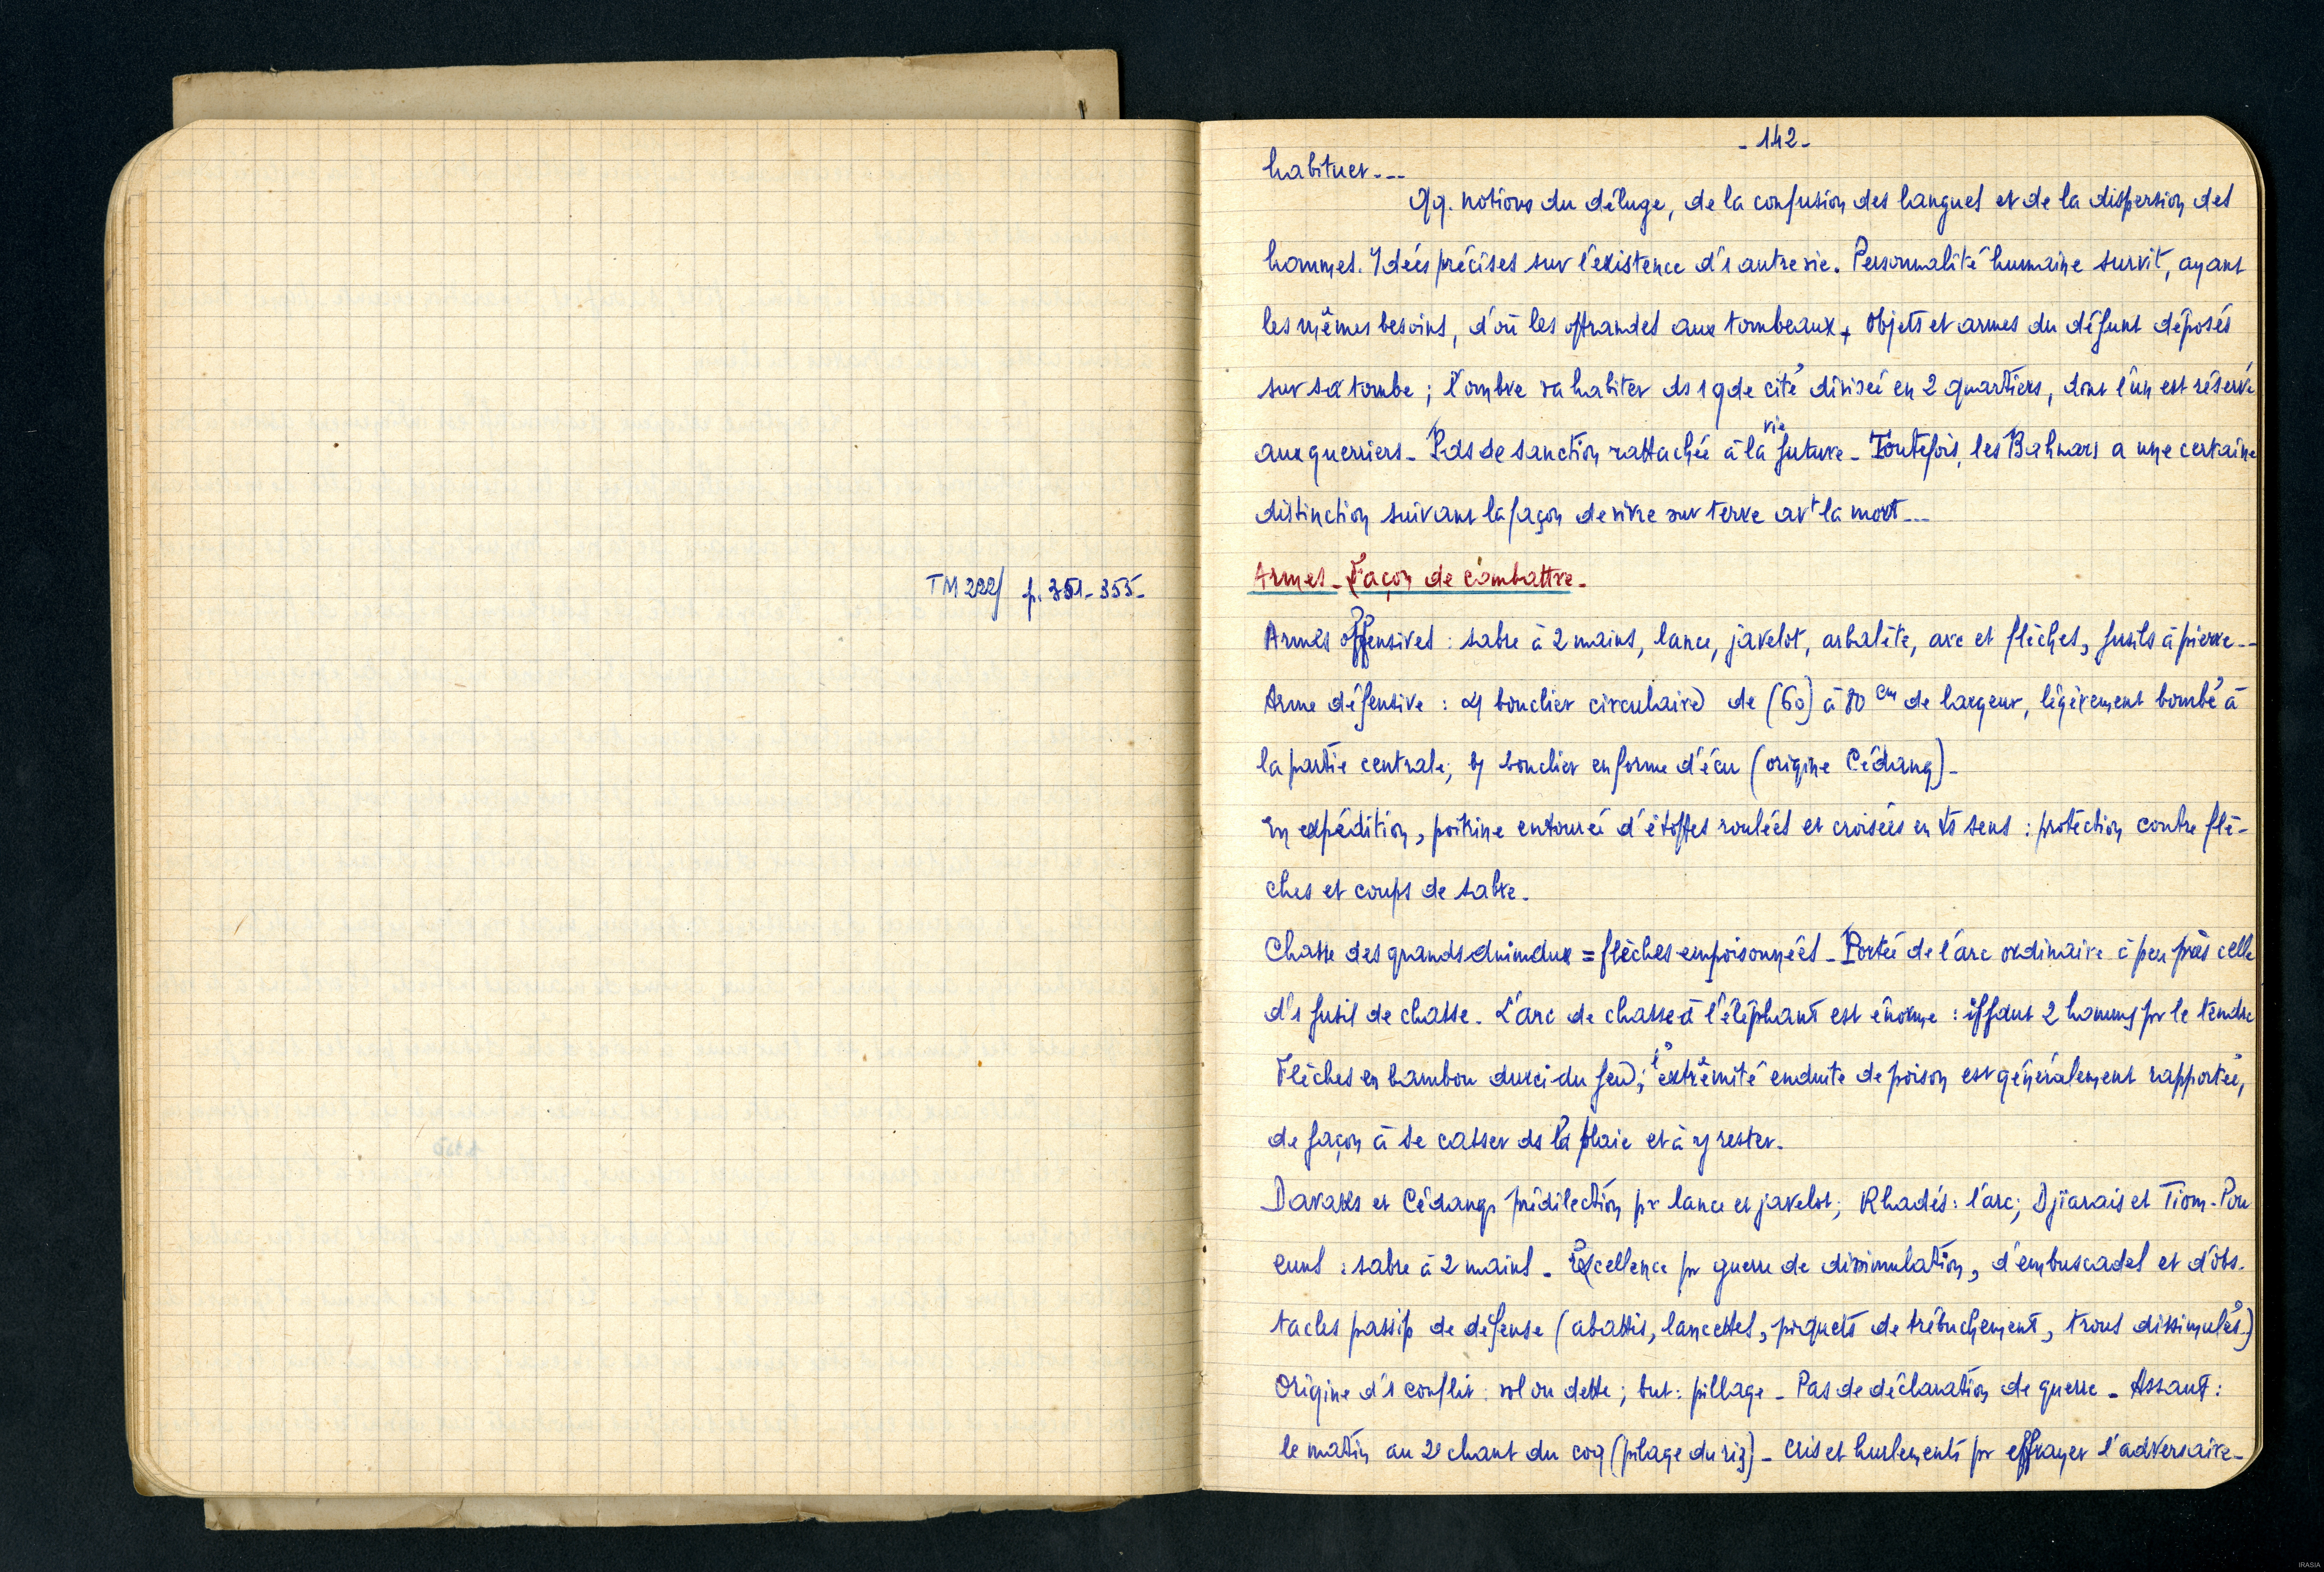 - 142 -
habituer...
Qq. notions du déluge, de la confusion des langues et de la dispersion des
hommes. Idées précises sur l'existence d'1 autre vie. Personnalité humaine survit, ayant
les mêmes besoins, d'où les offrandes aux tombeaux. Objets et armes du défunt déposés
sur sa tombe ; l'ombre va habiter ds 1 gde cité divisée en 2 quartiers, dont l'un est réservé
aux guerriers - Pas de sanction rattachée à la vie future - Toutefois, les Bahnars a une certaine
distinction suivant la façon de vivre sur terre avt la mort...
TM 222/ p. 351-355-
Armes - Façon de combattre -
Armes offensives : sabre à 2 mains, lance, javelot, arbalète, arc et flèches, fusils à pierre...
Arme défensive : a/ bouclier circulaire de (60) à 80 cm de largeur, légèrement bombé à
la partie centrale ; b/ bouclier en forme d'écu (origine Cédang) -
En expédition, poitrine entourée d'étoffes roulées et croisées en ts sens : protection contre flè-
ches et coups de sabre -
Chasse des grands animaux = flèches empoisonnées - Portée de l'arc ordinaire à peu près celle
d'1 fusil de chasse. L'arc de chasse à l'éléphant est énorme : il faut 2 hommes pr le tendre
Flèches en bambou durci du feu ; l'extrémité enduite de poison est généralement rapportée,
de façon à se casser ds la plaie et à y rester.
Davaks et Cédangs prédilection pr lance et javelot ; Rhadés : l'arc ; Djiarais et Tiom-Pou
euns : sabre à 2 mains - Excellence pr guerre de dissimulation, d'embuscades et d'obs-
tacles passifs de défense (abattis, lancettes, piquets de trébuchement, trous dissimulés)
Origine d'1 conflit : vol ou dette ; but : pillage - Pas de déclaration de guerre - Assaut :
le matin au 2e chant du coq (pilage du riz) - Cris et hurlements pr effrayer l'adversaire -
IRASIA